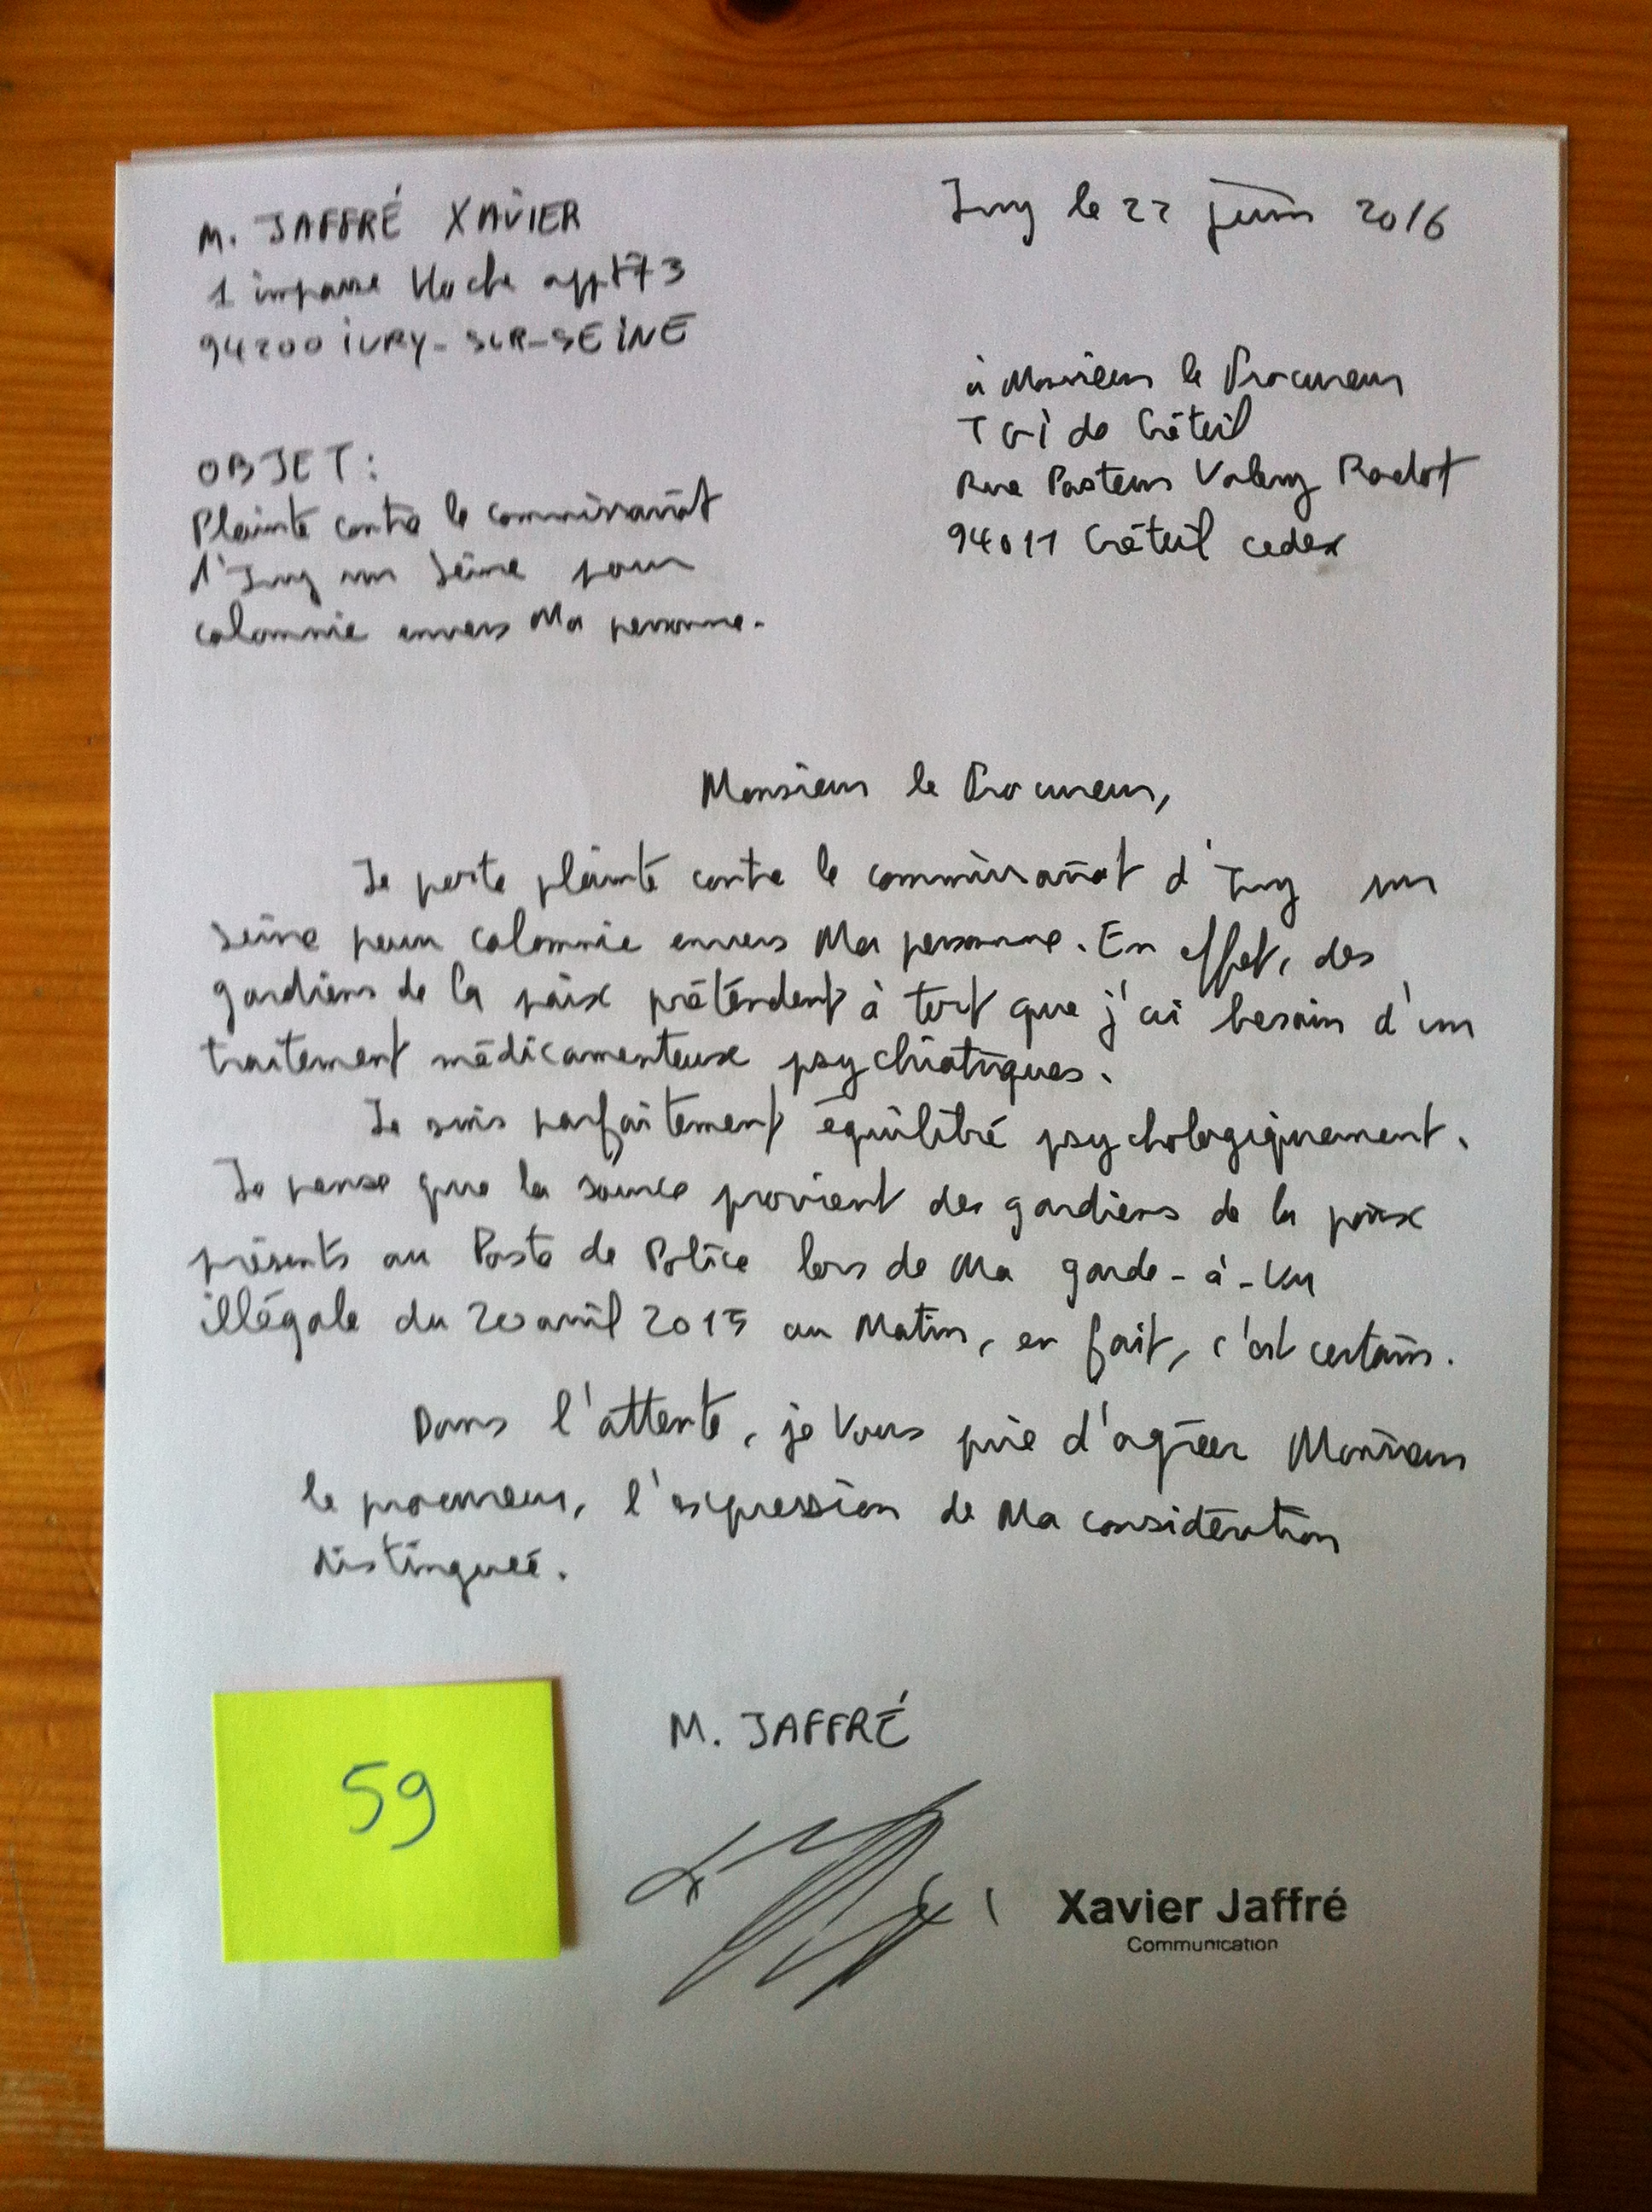 M. JAFFRÉ XAVIER
1 impasse Hoche appt 73
94200 IVRY-SUR-SEINE
Ivry le 22 juin 2016
à Monsieur le Procureur
TGI de Créteil
Rue Pasteur Valery Radot
94011 Créteil cedex
OBJET:
Plainte contre le commissariat
d'Ivry sur Seine pour
calomnie envers Ma personne.
Monsieur le Procureur,
Je porte plainte contre le commissariat d'Ivry sur
Seine pour calomnie envers Ma personne. En effet, des
gardiens de la paix prétendent à tort que j'ai besoin d'un
traitement médicamenteux psychiatriques.
Je suis parfaitement équilibré psychologiquement.
Je pense que la source provient des gardiens de la paix
présents au Poste de Police lors de Ma garde-à-vu
illégale du 20 avril 2015 au Matin, en fait, c'est certain.
Dans l'attente, je Vous prie d'agréer Monsieur
le procureur, l'expression de Ma considération
distinguée.
M. JAFFRÉ
59
Xavier Jaffré
Communication